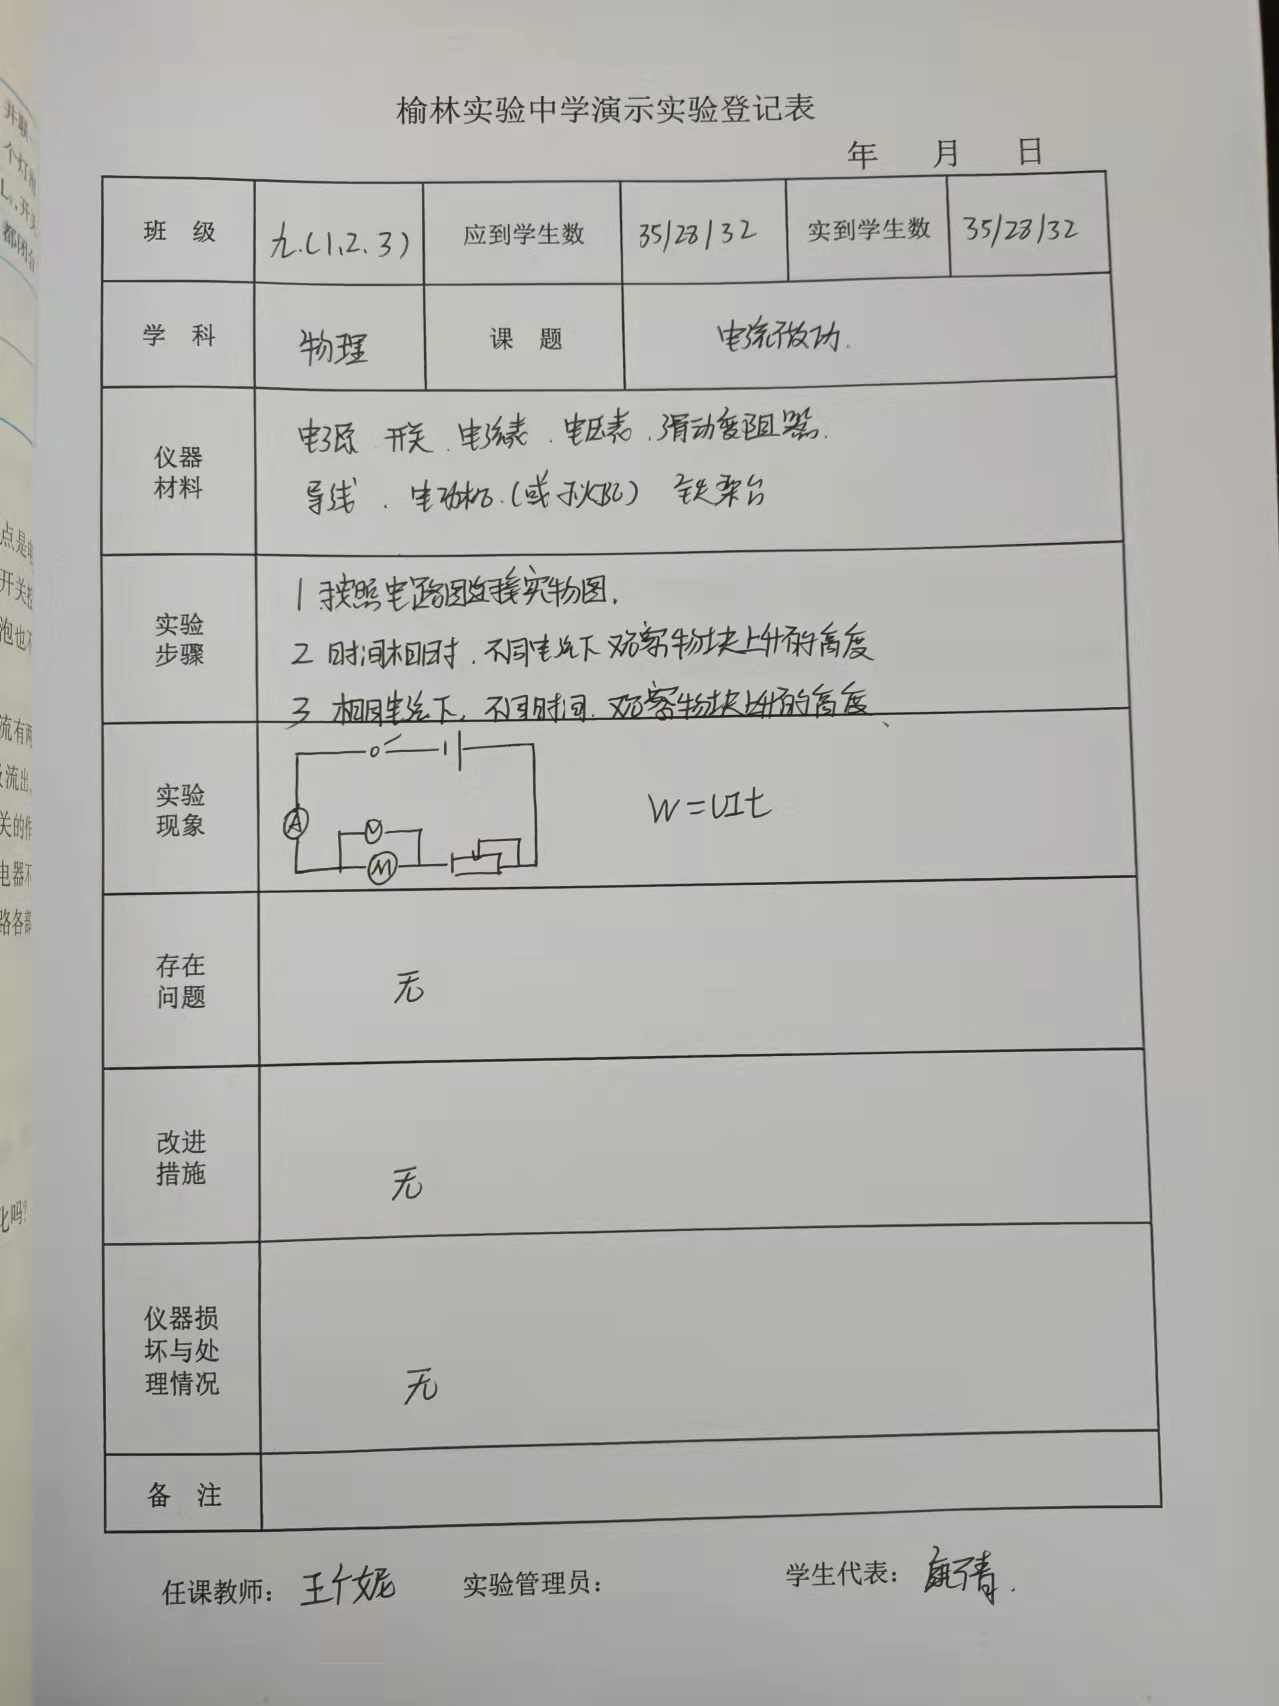 榆林实验中学演示实验登记表
年 月 日
班 级 九.(1、2、3) 应到学生数 35/28/32 实到学生数 35/28/32
学 科 物理 课 题 电流做功.
仪器
材料
电源、开关、电流表、电压表、滑动变阻器.
导线、电动机.(或 ) 铁架台
实验
步骤
1 按照电路图连接实物图.
2 时间相同时、不同电流下 观察物块上升的高度
3 相同电流下,不同时间.观察物块上升的高度、
实验
现象
A
V
M
W=UIt
存在
问题
无
改进
措施
无
仪器损
坏与处
理情况
无
备 注
任课教师: 王 妮 实验管理员: 学生代表: 青.
并联
个灯
L₁,开关
都闭合
点是
开关
泡也不
流有两
流出,
关的作
电器不
路各部
化吗?